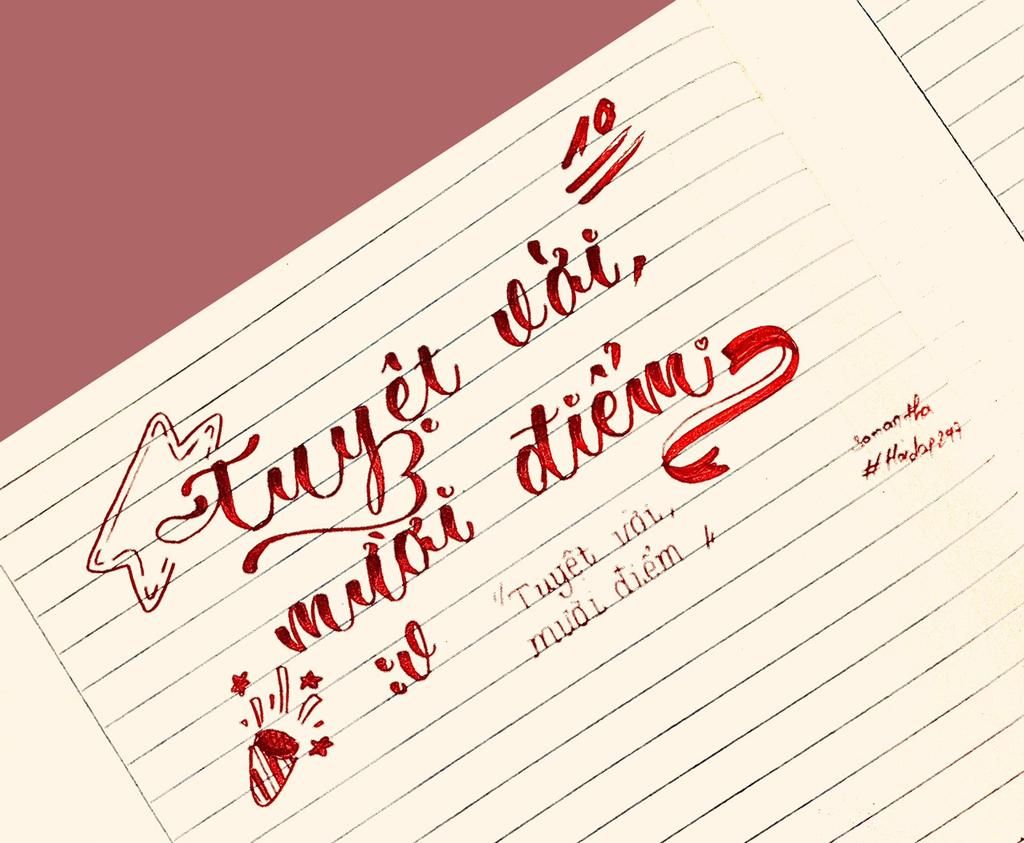 10
Tuyệt vời,
mười điểm
:v
"Tuyệt vời,
mười điểm"
Samantha